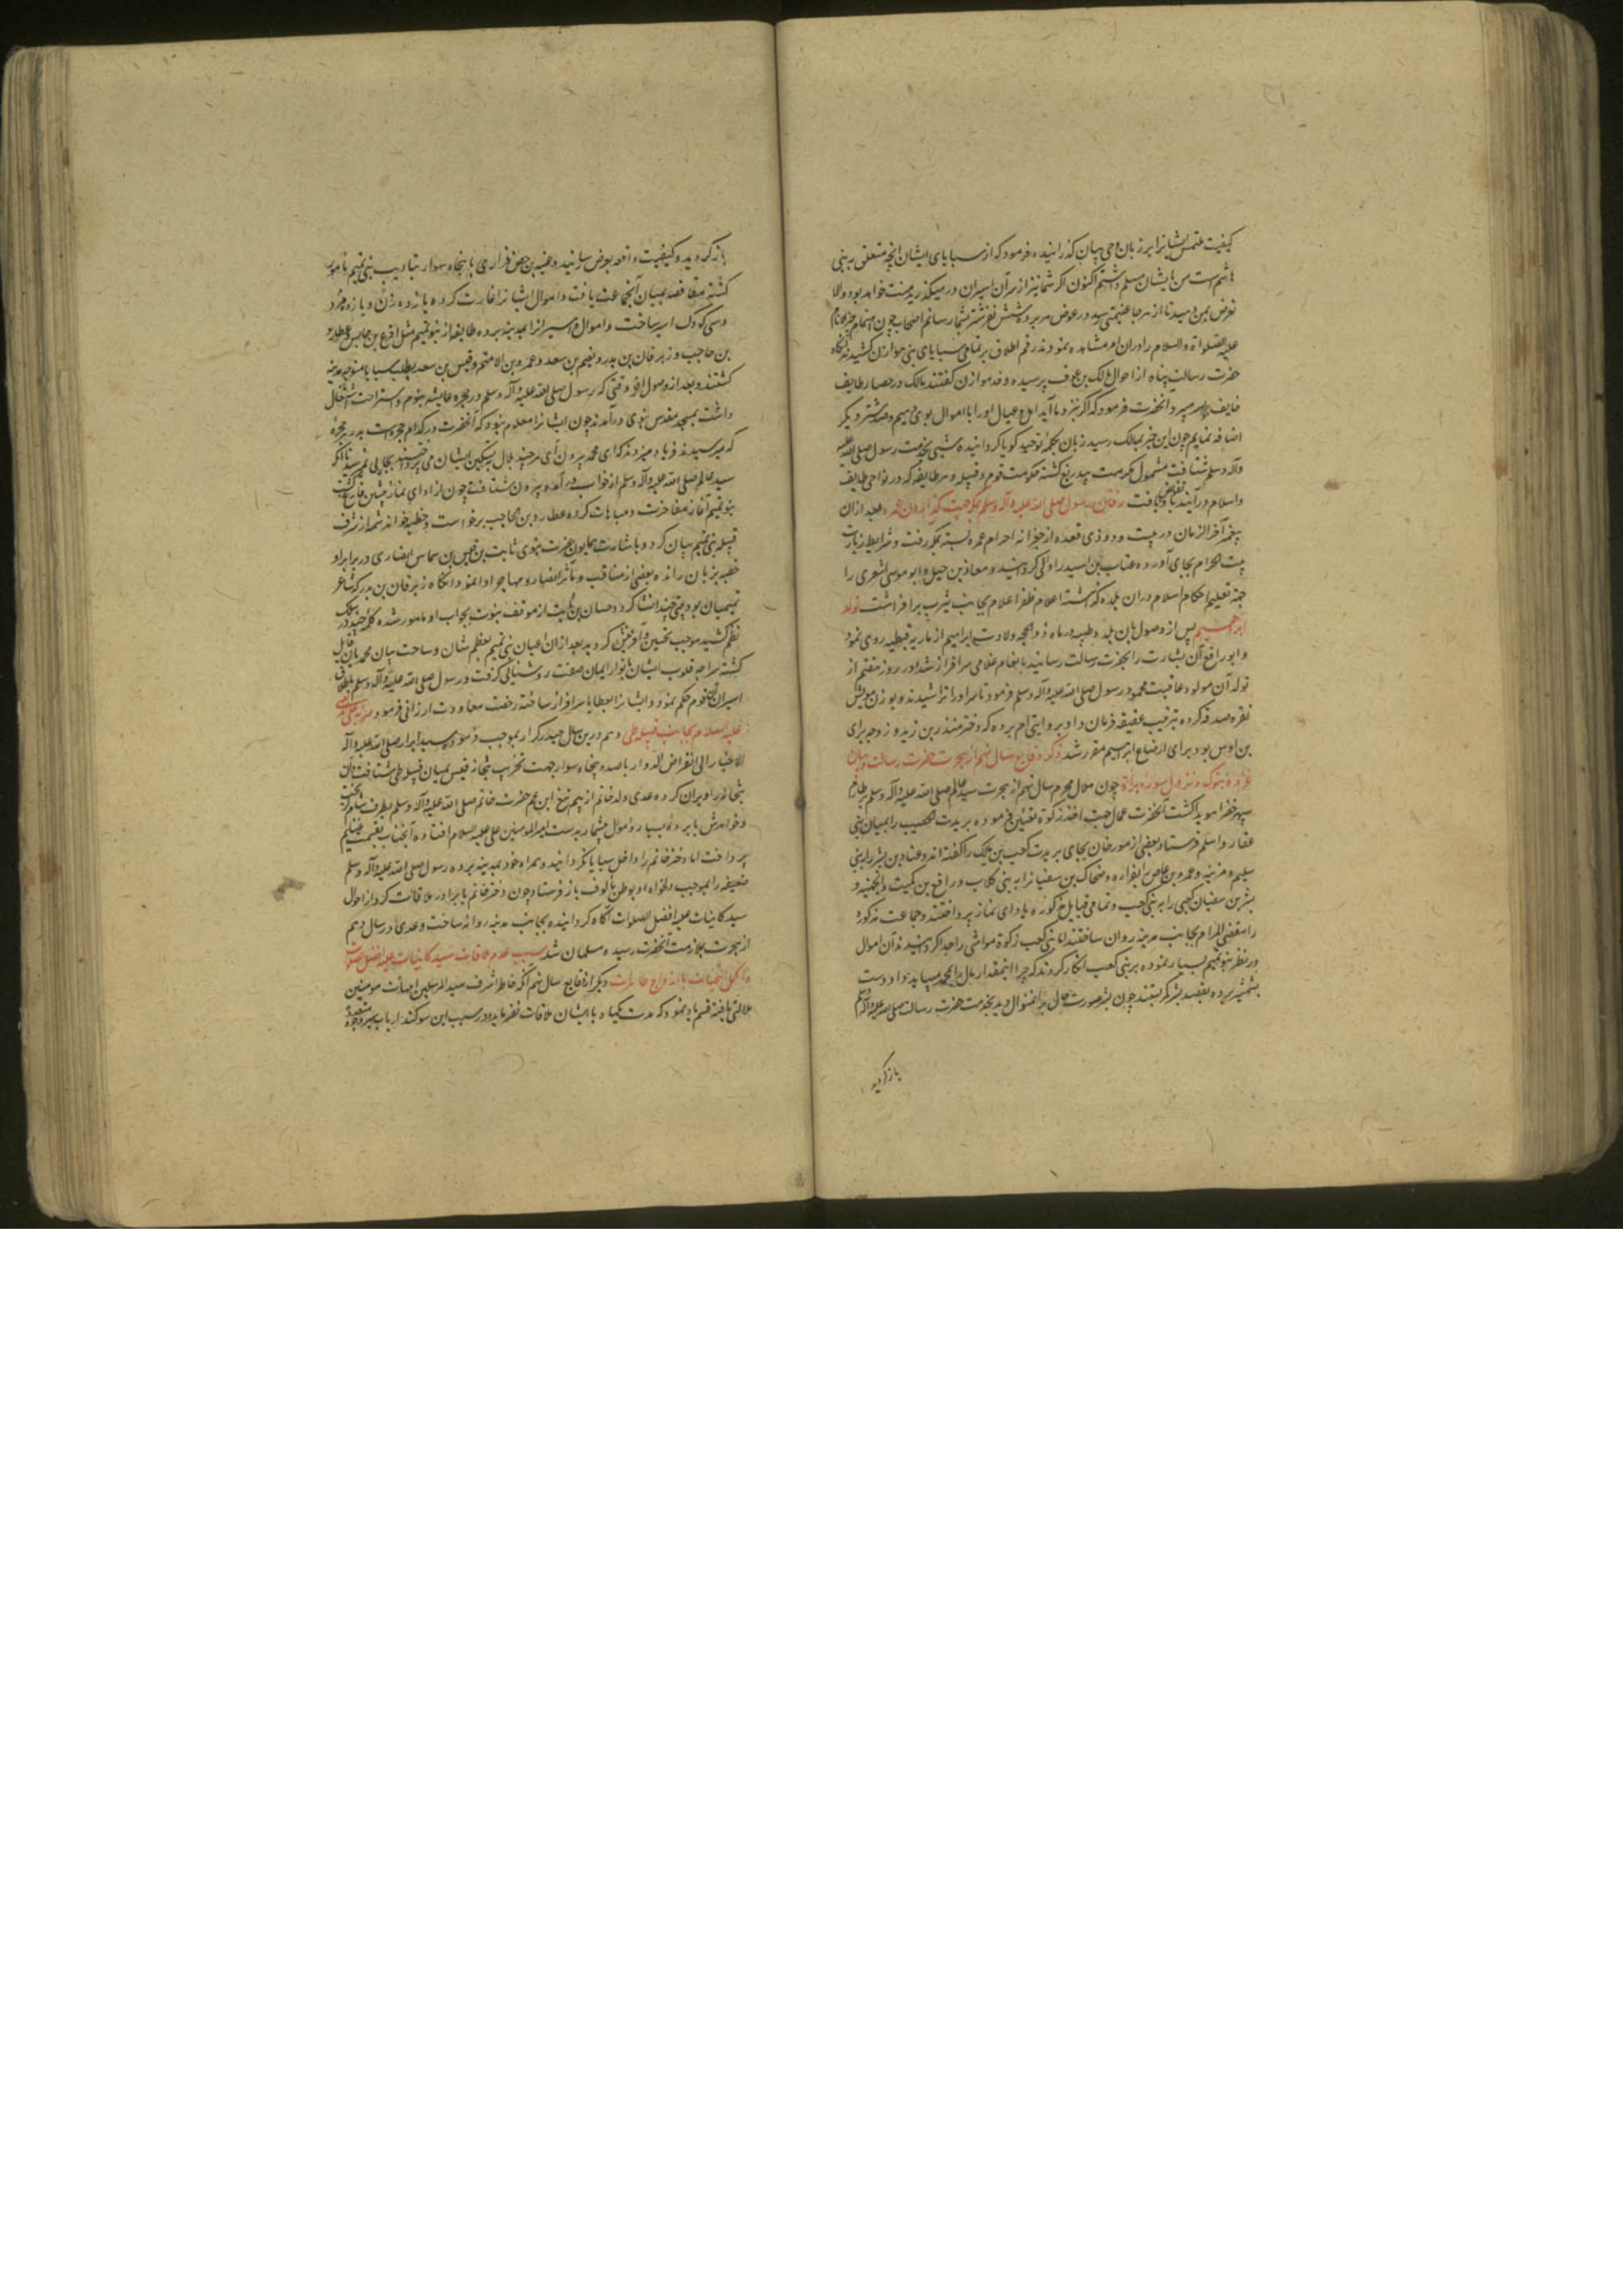 کیفیت ملتمس ایشانرا بر زبان وحی بیان گذرانیده فرمود که از سبایای ایشان آنچه متعلق به بنی
هاشم است من بایشان مسلم داشتم اکنون اگر شما نیز از سر آن اسیران درمیگذرید منت خواهد بود والا
بقرض بمن دهید تا از هر جا غنیمتی رسد در عوض هر برده شش نفر شتر بشما رسانم اصحاب چون اهتمام خیر الانام
علیه الصلواة والسلام را در آن امر مشاهده نمودند رقم اطلاق بر تمامی سبایای بنی هوازن کشیدند آنگاه
حضرت رسالت پناه از احوال مالک بن عوف پرسیده وفد هوازن گفتند مالک در حصار طایف
خایف بسر میبرد آنحضرت فرمود که اگر نزد ما آید اهل و عیال او را با اموال بوی دهیم و صد شتر دیگر
اضافه نمایم چون این خبر بمالک رسید زبان بکلمه توحید گویا گردانیده شبی بخدمت رسول صلی الله علیه
وآله وسلم شتافت مشمول مکرمت بیدریغ گشته حکومت قوم و قبیله و هر طایفه که در نواحی طایف
واسلام درآیند باو تفویض یافت رفتن رسول صلی الله علیه وآله وسلم بمکه جهت گذاردن عمره وبعد از آن
پیغمبر آخر الزمان در بیست و دو ذی قعده از جعرانه احرام عمره بسته بمکه رفت و شرایط زیارت
بیت الحرام بجای آورده عتاب بن اسید را والی گردانید و معاذ بن جبل و ابو موسی اشعری را
جهة تعلیم احکام اسلام در آن بلده گذاشته اعلام ظفر اعلام بجانب یثرب برافراشت تولد
ابراهیم پس از وصول بآن بلده طیبه در ماه ذو الحجه ولادت ابراهیم از ماریه قبطیه روی نمود
و ابو رافع آن بشارت را بحضرت رسالت رسانید بانعام غلامی سرافراز شد و در روز هفتم از
تولد آن مولود عاقبت محمود رسول صلی الله علیه وآله وسلم فرمود تا سر او را تراشیدند و بوزن مویش
نقره صدقه کرده بترتیب عقیقه فرمان داد بروایتی ام برده که دختر منذر بن زید و زوجه برای
بن اوس بود برای ارضاع ابراهیم مقرر شد ذکر وقایع سال نهم از هجرت حضرت رسالت و بیان
غزوه تبوک و نزول سوره براة چون هلال محرم سال نهم از هجرت سید عالم صلی الله علیه وآله وسلم بر طارم
سپهر خضرا هویدا گشت آنحضرت عمال جهت اخذ زکوة تعیین فرموده بریدت الحصیب را بمیان بنی
غفار و اسلم فرستاد و بعضی از مورخان بجای بریدت کعب بن مالک را گفته اند و عباد بن بشر را ببنی
سلیم و مزینه و عمرو بن عاص بفزاره و ضحاک بن سفیان را به بنی کلاب و رافع بن کمیت را بجهنیه و
بشر بن سفیان کعبی را به بنی کعب و تمامی قبایل مذکوره بادای نماز پرداختند و جماعت مذکور
را مقضی المرام بجانب مدینه روان ساختند اما بنی کعب زکوة مواشی را جدا کردانیدند آن اموال
در نظر بنو تمیم بسیار نموده بر بنی کعب انکار کردند که چرا اینمقدار مال را بمحمد میباید داد دست
بشمشیر برده بقصد بشر کمر بستند چون بشر صورت حال بدانمنوال دید بخدمت حضرت رسالت صلی الله علیه وآله وسلم
بازگردید
بازگردید و کیفیت واقعه بعرض رسانید و عیینه بن حصن فزاری با پنجاه سوار بتادیب بنی تمیم مامور
گشته مغافصه بمیان آنجماعت یافت و اموال ایشانرا غارت کرده یازده زن و یازده مرد
و سی کودک اسیر ساخت و اموال و اسیرانرا بمدینه برده طایفه از بنو تمیم مثل اقرع بن حابس و عطارد
بن حاجب و زبرقان بن بدر و نعیم بن سعد و عمرو بن الاهتم و قیس بن سعد بطلب سبایا متوجه مدینه
گشتند و بعد از وصول در وقتی که رسول صلی الله علیه وآله وسلم در حجره عایشه بنوم و استراحت اشتغال
داشت بمسجد مقدس نبوی درآمدند چون ایشانرا معلوم نبود که آنحضرت در کدام حجره است بدر هر حجره
که میرسیدند فریاد میزدند که ای محمد بیرون آی هر چند بلال بتسکین ایشان می پرداخت بجایی نمیرسید تا آنکه
سید عالم صلی الله علیه وآله وسلم از خواب درآمده بیرون شتافت و چون از ادای نماز پیشین فارغ گشت
بنو تمیم آغاز مفاخرت و مباهات کرده عطارد بن الحاجب برخواست و خطبه خواند شمه از شرف
قبیله بنی تمیم بیان کرد و باشارت همایون حضرت نبوی ثابت بن قیس بن شماس انصاری در برابر او
خطبه بزبان رانده بعضی از مناقب و مآثر انصار و مهاجر ادا نمود آنگاه زبرقان بن بدر که شاعر
تمیمیان بود بیتی چند انشا کرد و حسان بن ثابت از موقف نبوت بجواب او مامور شده کلمه چند در سلک
نظم کشید موجب تحسین و آفرین گردید بعد از آن اعیان بنی تمیم بعظم شان و ساحت بیان محمد بان قایل
گشته سراچه قلوب ایشان بانوار ایمان صفت روشنایی گرفت و رسول صلی الله علیه وآله وسلم باطلاق
اسیران آنقوم حکم نمود و ایشانرا بعطایا سرافراز ساخته رخصت معاودت ارزانی فرمود سریه علی مرتضی
علیه السلام بجانب قبیله طی وهم درین سال حیدر کرار بموجب فرموده سید ابرار صلی الله علیه وآله
الاخیار الی انقراض الدوار با صد و پنجاه سوار جهت تخریب بتخانه قیس بمیان قبیله طی شتافت آن
بتخانه را ویران کرده عدی ولد حاتم از بیم تیغ ابن عم حضرت خاتم صلی الله علیه وآله وسلم بطرف شام گریخت
و خواهرش با برده بسیار و اموال بیشمار بدست امیر المومنین علی علیه السلام افتاده آنجناب بقسمت غنایم
پرداخت اما دختر حاتم را داخل سبایا نکردانید و همراه خود بمدینه برده رسول صلی الله علیه وآله وسلم
ضعیفه را بموجب دلخواه او بوطن مالوف باز فرستاد و چون دختر حاتم با برادر ملاقات کرد از احوال
سید کاینات علیه افضل الصلوات آگاه گردانیده بجانب مدینه روانه ساخت و عدی در سال دهم
از هجرت بملازمت آنحضرت رسیده مسلمان شد سبب عدم ملاقات سید کاینات علیه افضل الصلوات
و اکمل التحیات با ازواج طاهرات دیگر از وقایع سال نهم آنکه خاطر اشرف سید المرسلین از امهات مومنین
ملالتی یافته قسم یاد نمود که مدت یکماه با ایشان ملاقات نفرماید و در سبب این سوگند ارباب سیر وجوه متعدده